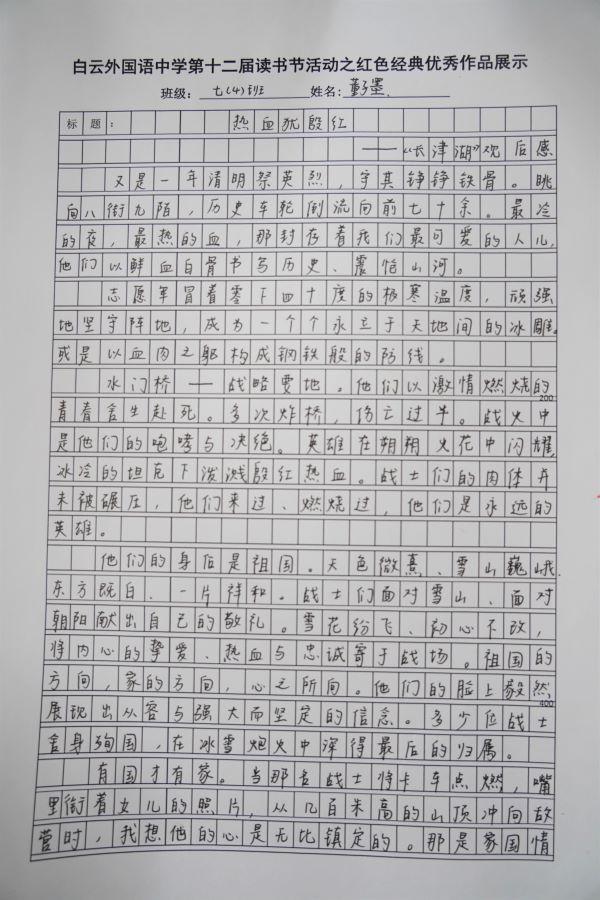 白云外国语中学第十二届读书节活动之红色经典优秀作品展示
班级：七(4)班 姓名：董子墨.
标题： 热血犹殷红
——“长津湖”观后感
又是一年清明祭英烈，守其铮铮铁骨。眺
向八街九陌，历史车轮倒流向前七十余。最冷
的夜，最热的血，那封存着我们最可爱的人儿，
他们以鲜血白骨书写历史、震恰山河。
志愿军冒着零下四十度的极寒温度，顽强
地坚守阵地，成为一个个永立于天地间的冰雕。
或是以血肉之躯构成钢铁般的防线。
水门桥——战略要地。他们以激情燃烧的
200
青春舍生赴死。多次炸桥，伤亡过半。战火中
是他们的咆哮与决绝。英雄在朔朔火花中闪耀，
冰冷的坦克下泼溅殷红热血。战士们的肉体并
未被碾压，他们来过、燃烧过，他们是永远的
英雄。
他们的身后是祖国。天色微熹、雪山巍峨.
东方既白、一片祥和。战士们面对雪山、面对
朝阳献出自己的敬礼。雪花纷飞、初心不改，
将内心的挚爱、热血与忠诚寄于战场。祖国的
方向，家的方向，心之所向。他们的脸上毅然
400
展现出从容与强大而坚定的信念。多少位战士
舍身殉国，在冰雪炮火中深得最后的归属。
有国才有家。当那名战士将卡车点燃，嘴
里衔着女儿的照片，从几百米高的山顶冲向敌
营时，我想他的心是无比镇定的。那是家国情